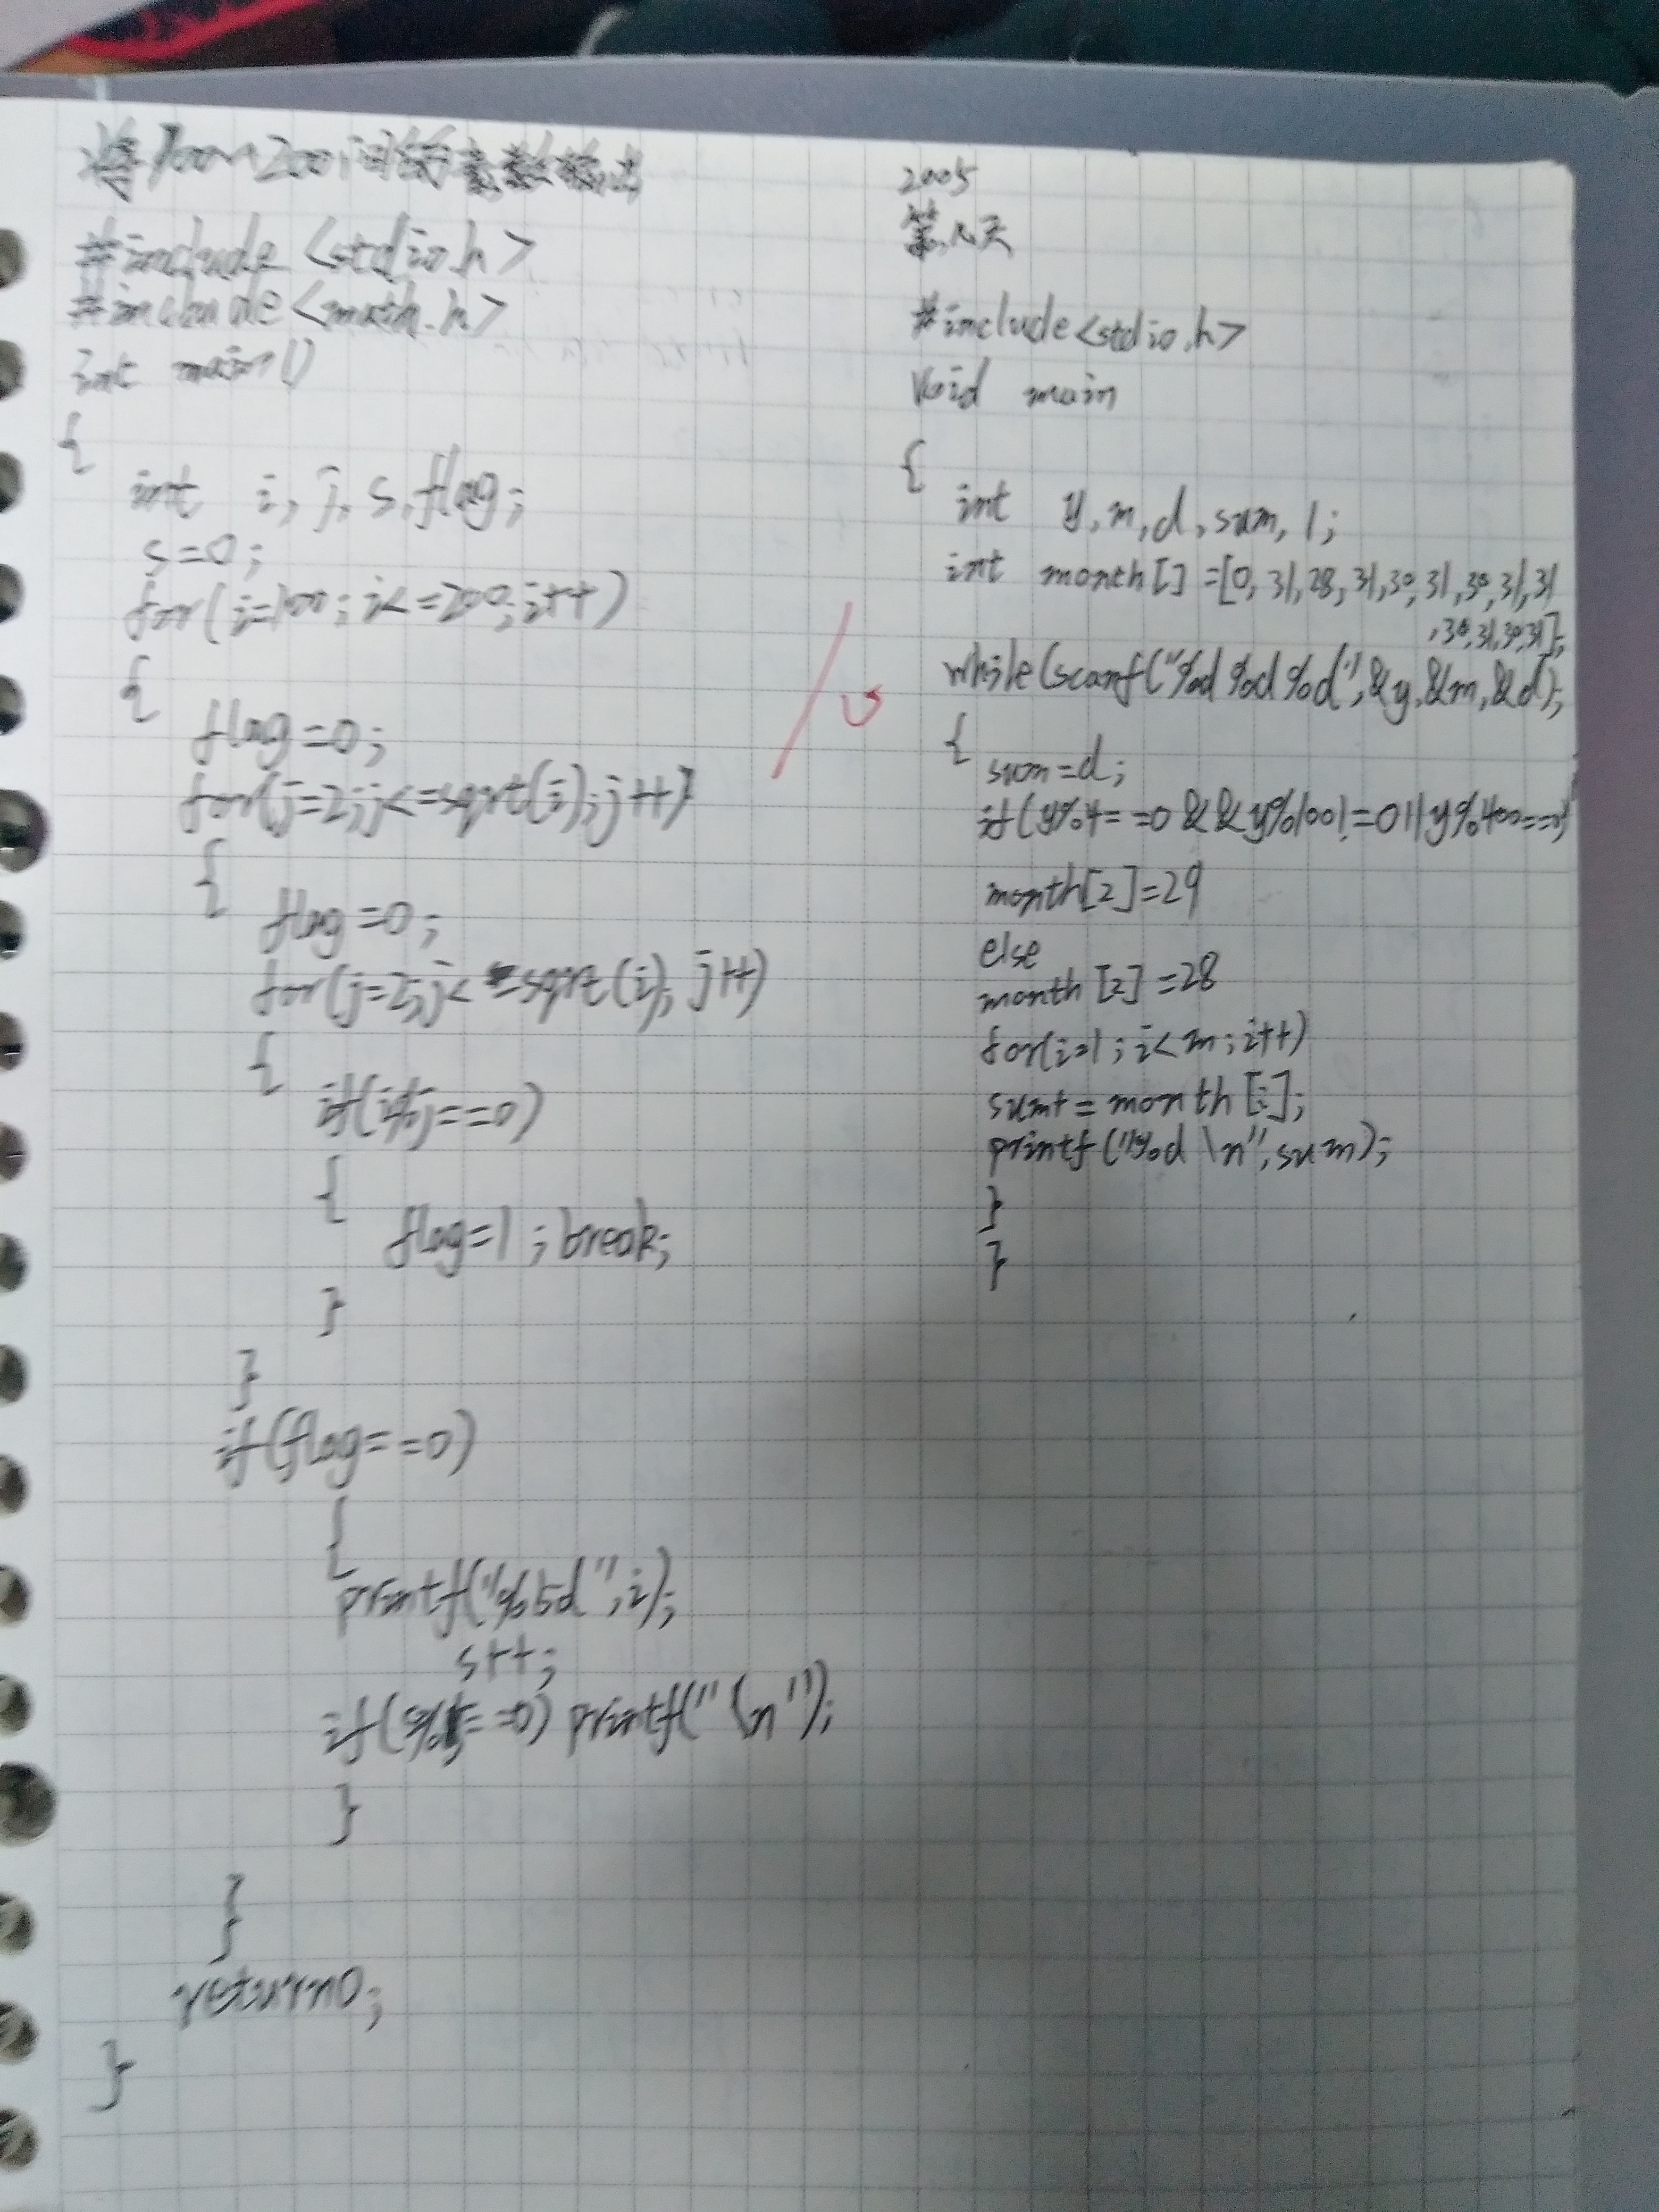 将100~200之间的素数输出
#include <stdio.h>
#include <math.h>
int main()
{
int i, j, s, flag;
s=0;
for(i=100; i<=200; i++)
{
flag=0;
for(j=2;j<=sqrt(i);j++)
{
flag=0;
for(j=2;j<=sqrt(i);j++)
{
if(i%j==0)
{
flag=1;break;
}
}
if(flag==0)
{
printf("%5d",i);
s++;
==0) printf("\n");
}
}
return0;
}
2005
第几天
#include<stdio.h>
void main
{
int y,m,d,sum,1;
int month[]=[0,31,28,31,30,31,30,31,31
,30,31,30,31];
while(scanf("%d %d %d",&y,&m,&d);
{
sum=d;
if(y%4==0&&y%100!=0||y%400==0)
month[2]=29
else
month[2]=28
for(i=1;i<m;i++)
sum+=month[i];
printf("%d\n",sum);
}
}